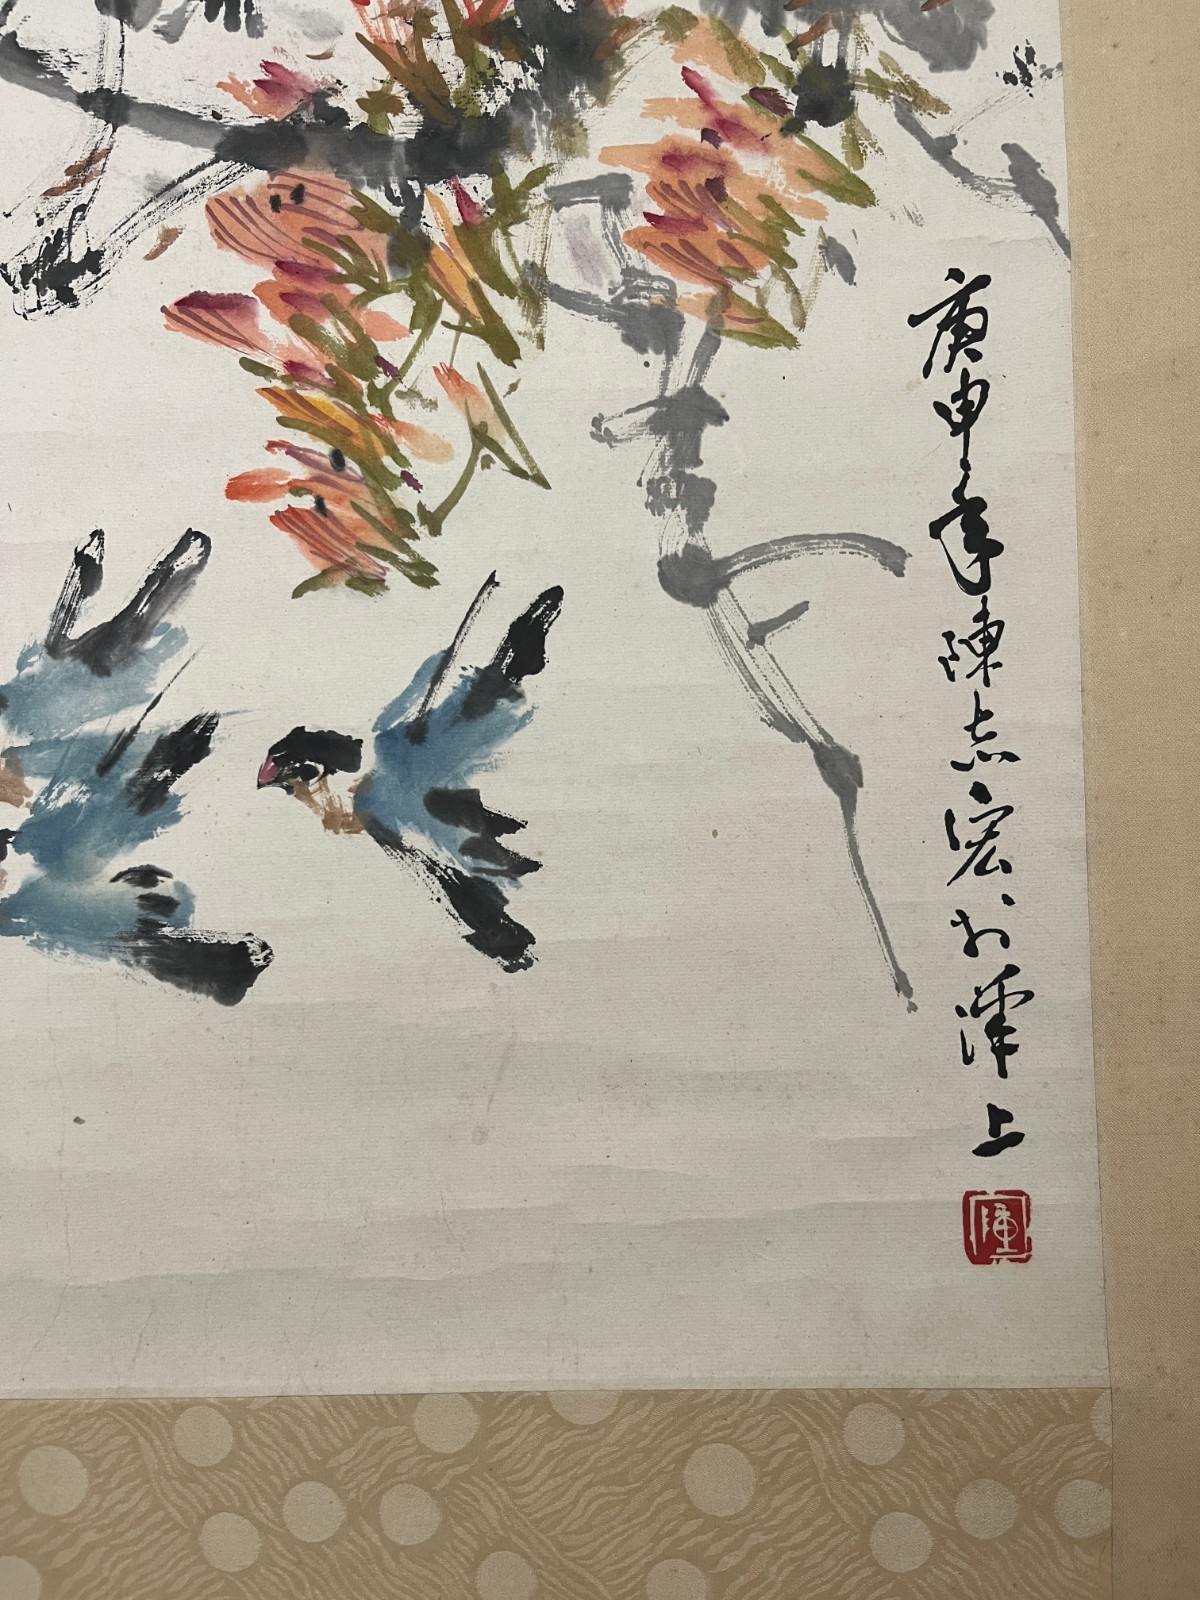 庚申年陳志宏於滬上
陳